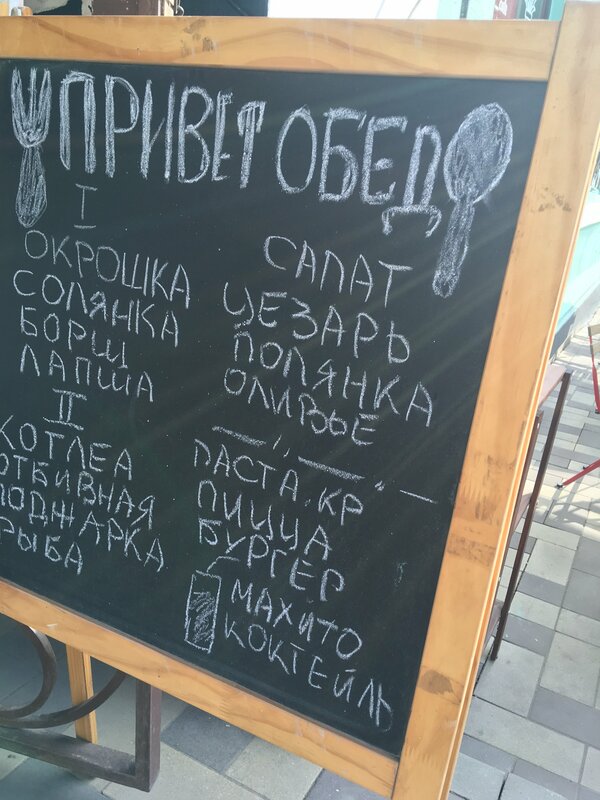 ПРИВЕТ ОБЕД
I
ОКРОШКА
СОЛЯНКА
БОРЩ
ЛАПША
II
КОТЛЕА
ОТБИВНАЯ
ПОДЖАРКА
РЫБА
САЛАТ
ЦЕЗАРЬ
ПОЛЯНКА
ОЛИВЬЕ
ПАСТА, КР
ПИЦЦА
БУРГЕР
МАХИТО
КОКТЕЙЛЬ